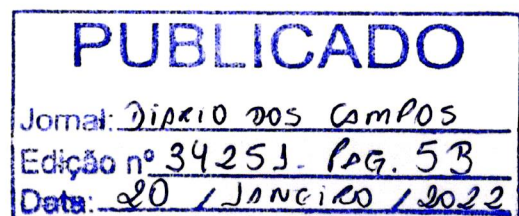 PUBLICADO
Jornal: DIARIO DOS CAMPOS
Edição nº 34251 - PAG. 5B
Data: 20 / JANEIRO / 2022